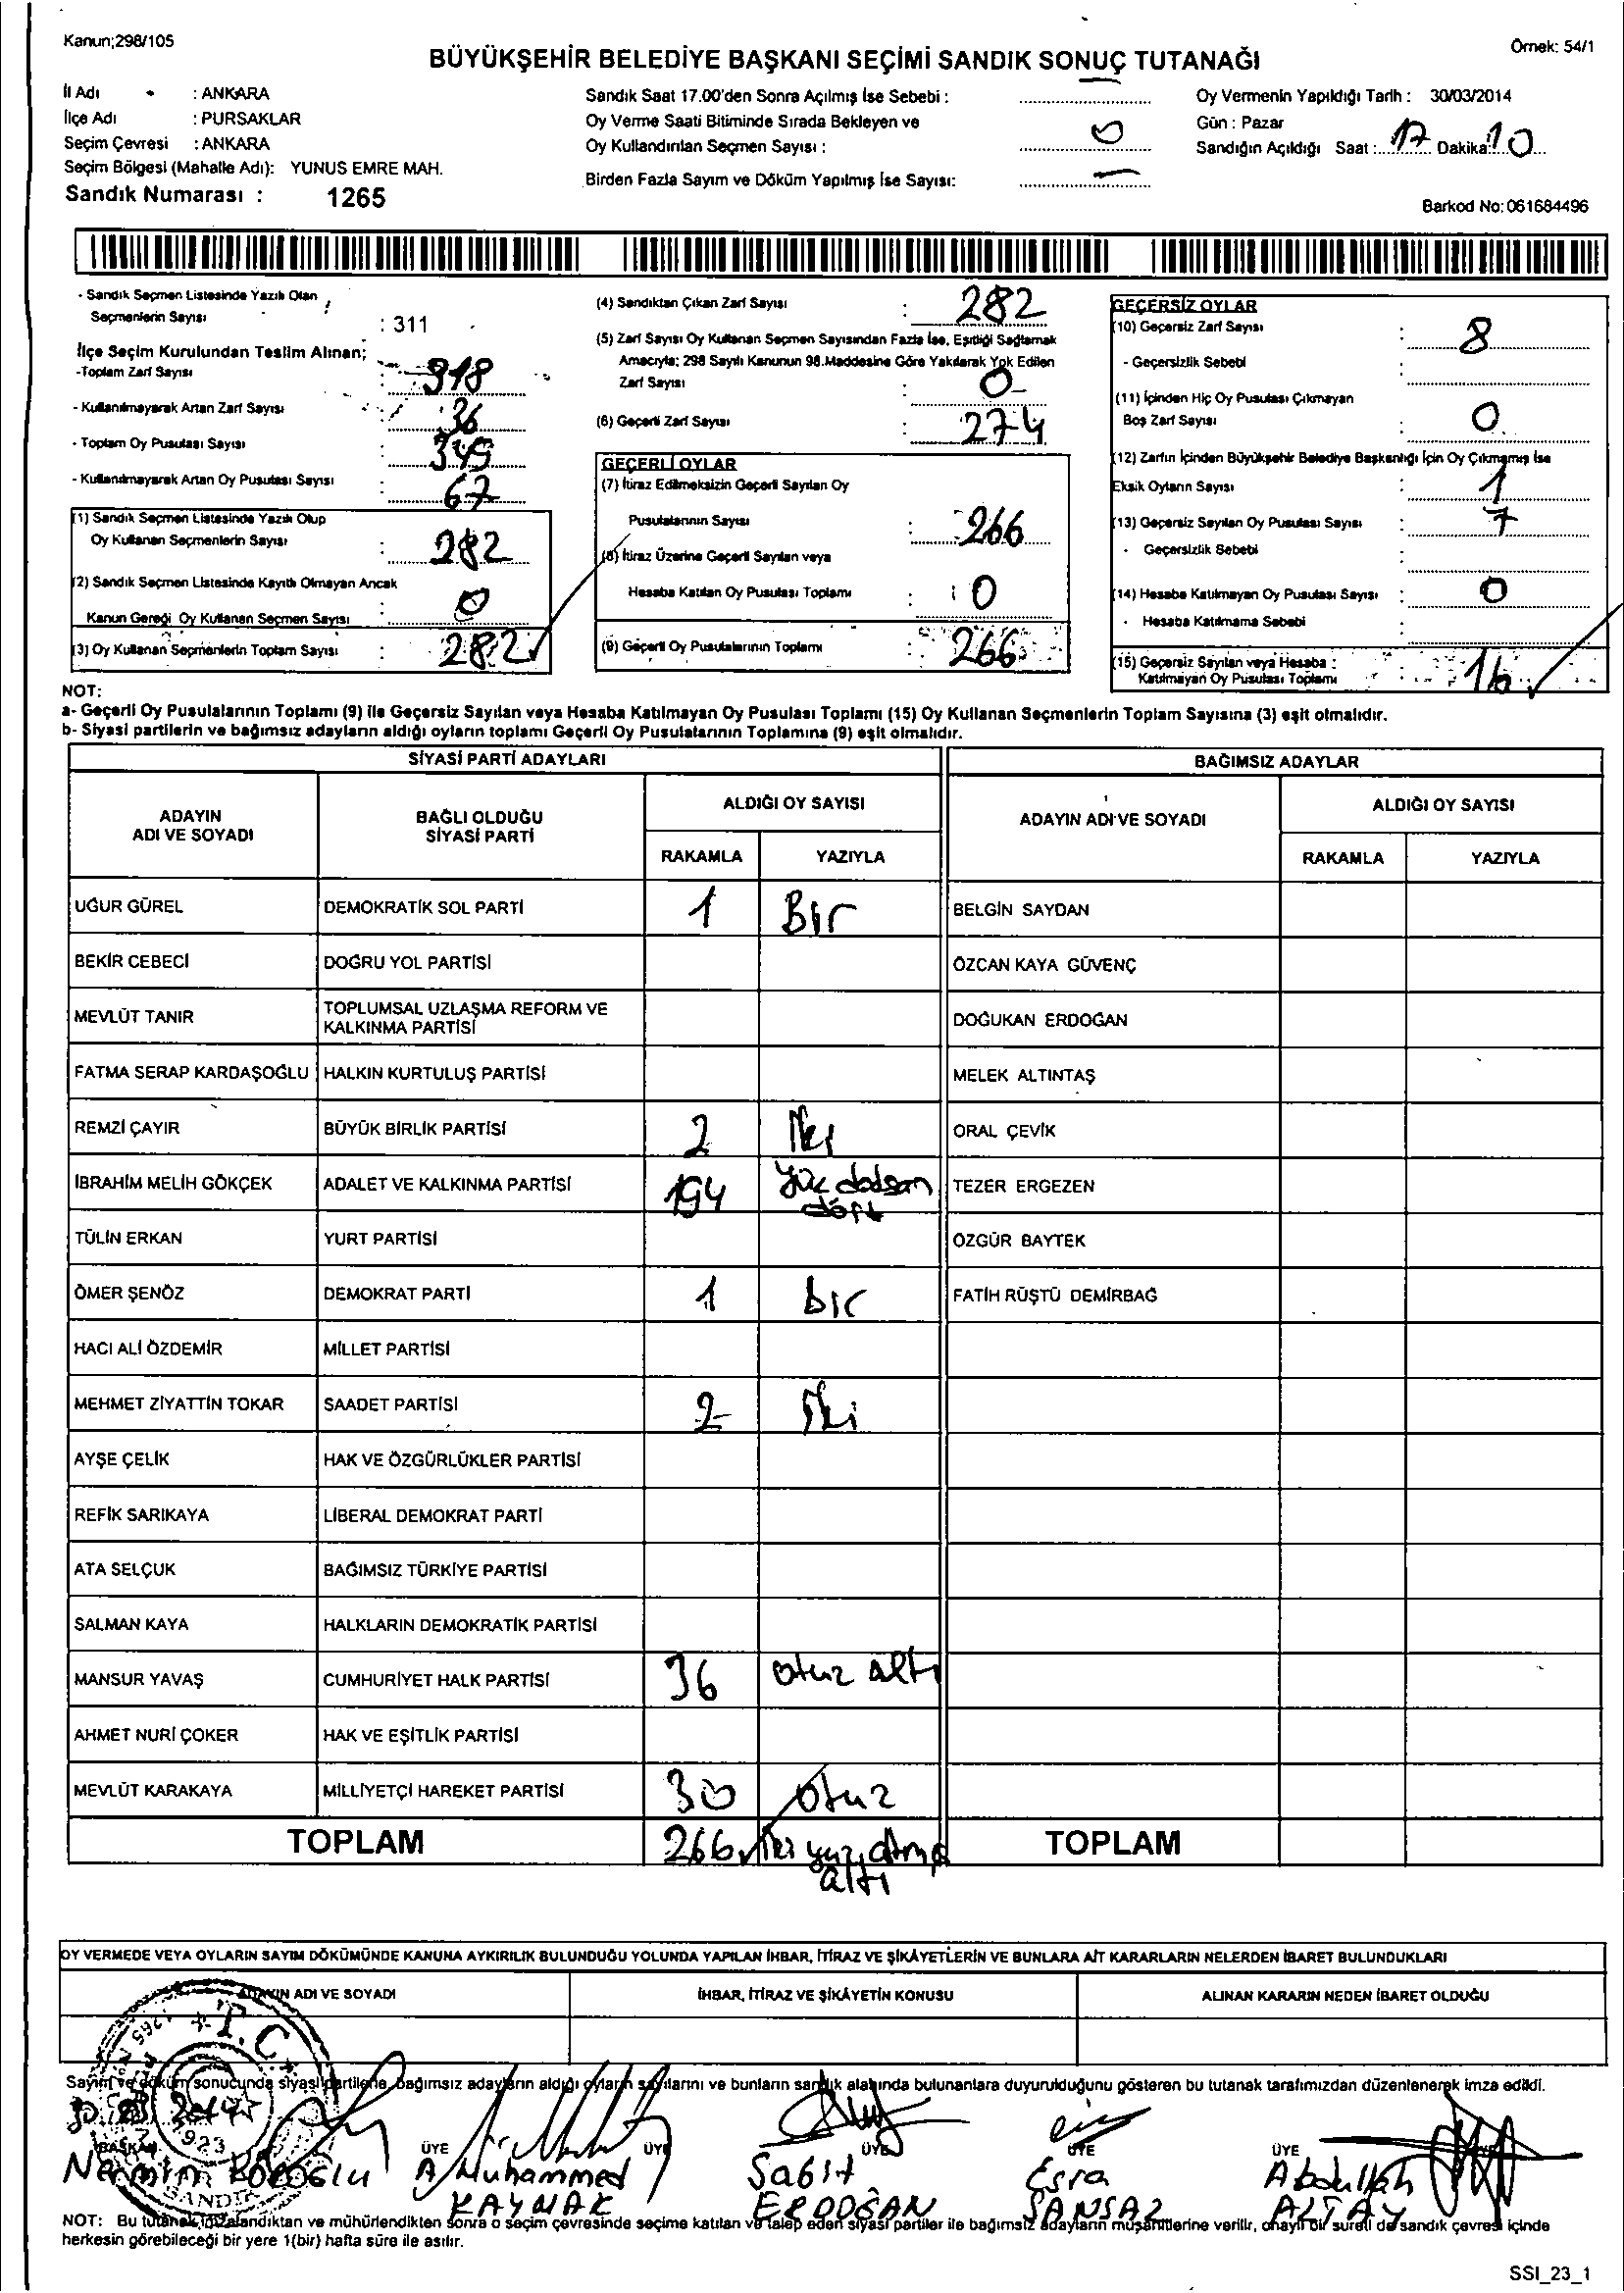 Kanun;298/105
Örnek: 54/1
BÜYÜKŞEHİR BELEDİYE BAŞKANI SEÇİMİ SANDIK SONUÇ TUTANAĞI
İl Adı : ANKARA
İlçe Adı : PURSAKLAR
Seçim Çevresi : ANKARA
Seçim Bölgesi (Mahalle Adı): YUNUS EMRE MAH.
Sandık Numarası : 1265
Sandık Saat 17.00'den Sonra Açılmış İse Sebebi : —
Oy Verme Saati Bitiminde Sırada Bekleyen ve
Oy Kullandırılan Seçmen Sayısı : 0
Birden Fazla Sayım ve Döküm Yapılmış İse Sayısı: —
Oy Vermenin Yapıldığı Tarih : 30/03/2014
Gün : Pazar
Sandığın Açıldığı Saat : 17 Dakika: 10
Barkod No: 061684496
- Sandık Seçmen Listesinde Yazılı Olan
Seçmenlerin Sayısı : 311
İlçe Seçim Kurulundan Teslim Alınan;
-Toplam Zarf Sayısı : 318
- Kullanılmayarak Artan Zarf Sayısı : 36
- Toplam Oy Pusulası Sayısı : 349
- Kullanılmayarak Artan Oy Pusulası Sayısı : 67
(1) Sandık Seçmen Listesinde Yazılı Olup
Oy Kullanan Seçmenlerin Sayısı : 282
(2) Sandık Seçmen Listesinde Kayıtlı Olmayan Ancak
Kanun Gereği Oy Kullanan Seçmen Sayısı : 0
(3) Oy Kullanan Seçmenlerin Toplam Sayısı : 282
(4) Sandıktan Çıkan Zarf Sayısı : 282
(5) Zarf Sayısı Oy Kullanan Seçmen Sayısından Fazla İse, Eşitliği Sağlamak
Amacıyla; 298 Sayılı Kanunun 98.Maddesine Göre Yakılarak Yok Edilen
Zarf Sayısı : 0
(6) Geçerli Zarf Sayısı : 274
GEÇERLİ OYLAR
(7) İtiraz Edilmeksizin Geçerli Sayılan Oy
Pusulalarının Sayısı : 266
(8) İtiraz Üzerine Geçerli Sayılan veya
Hesaba Katılan Oy Pusulası Toplamı : 0
(9) Geçerli Oy Pusulalarının Toplamı : 266
GEÇERSİZ OYLAR
(10) Geçersiz Zarf Sayısı : 8
- Geçersizlik Sebebi :
(11) İçinden Hiç Oy Pusulası Çıkmayan
Boş Zarf Sayısı : 0
(12) Zarfın İçinden Büyükşehir Belediye Başkanlığı İçin Oy Çıkmamış İse
Eksik Oyların Sayısı : 1
(13) Geçersiz Sayılan Oy Pusulası Sayısı : 7
- Geçersizlik Sebebi :
(14) Hesaba Katılmayan Oy Pusulası Sayısı : 0
- Hesaba Katılmama Sebebi :
(15) Geçersiz Sayılan veya Hesaba :
Katılmayan Oy Pusulası Toplamı 16
NOT:
a- Geçerli Oy Pusulalarının Toplamı (9) ile Geçersiz Sayılan veya Hesaba Katılmayan Oy Pusulası Toplamı (15) Oy Kullanan Seçmenlerin Toplam Sayısına (3) eşit olmalıdır.
b- Siyasi partilerin ve bağımsız adayların aldığı oyların toplamı Geçerli Oy Pusulalarının Toplamına (9) eşit olmalıdır.
SİYASİ PARTİ ADAYLARI
BAĞIMSIZ ADAYLAR
ADAYIN ADI VE SOYADI
BAĞLI OLDUĞU SİYASİ PARTİ
ALDIĞI OY SAYISI
RAKAMLA YAZIYLA
ADAYIN ADI VE SOYADI
ALDIĞI OY SAYISI
RAKAMLA YAZIYLA
UĞUR GÜREL DEMOKRATİK SOL PARTİ 1 Bir BELGİN SAYDAN
BEKİR CEBECİ DOĞRU YOL PARTİSİ ÖZCAN KAYA GÜVENÇ
MEVLÜT TANIR TOPLUMSAL UZLAŞMA REFORM VE KALKINMA PARTİSİ DOĞUKAN ERDOĞAN
FATMA SERAP KARDAŞOĞLU HALKIN KURTULUŞ PARTİSİ MELEK ALTINTAŞ
REMZİ ÇAYIR BÜYÜK BİRLİK PARTİSİ 2 İki ORAL ÇEVİK
İBRAHİM MELİH GÖKÇEK ADALET VE KALKINMA PARTİSİ 194 yüz doksan dört TEZER ERGEZEN
TÜLİN ERKAN YURT PARTİSİ ÖZGÜR BAYTEK
ÖMER ŞENÖZ DEMOKRAT PARTİ 1 bir FATİH RÜŞTÜ DEMİRBAĞ
HACI ALİ ÖZDEMİR MİLLET PARTİSİ
MEHMET ZİYATTİN TOKAR SAADET PARTİSİ 2 İki
AYŞE ÇELİK HAK VE ÖZGÜRLÜKLER PARTİSİ
REFİK SARIKAYA LİBERAL DEMOKRAT PARTİ
ATA SELÇUK BAĞIMSIZ TÜRKİYE PARTİSİ
SALMAN KAYA HALKLARIN DEMOKRATİK PARTİSİ
MANSUR YAVAŞ CUMHURİYET HALK PARTİSİ 36 otuz altı
AHMET NURİ ÇOKER HAK VE EŞİTLİK PARTİSİ
MEVLÜT KARAKAYA MİLLİYETÇİ HAREKET PARTİSİ 30 otuz
TOPLAM 266 iki yüz altmış altı TOPLAM
OY VERMEDE VEYA OYLARIN SAYIM DÖKÜMÜNDE KANUNA AYKIRILIK BULUNDUĞU YOLUNDA YAPILAN İHBAR, İTİRAZ VE ŞİKÂYETLERİN VE BUNLARA AİT KARARLARIN NELERDEN İBARET BULUNDUKLARI
ADAYIN ADI VE SOYADI İHBAR, İTİRAZ VE ŞİKÂYETİN KONUSU ALINAN KARARIN NEDEN İBARET OLDUĞU
T.C.
Sayım ve döküm sonucunda siyasi partilerle, bağımsız adayların aldığı oyların sayılarını ve bunların sandık alanında bulunanlara duyurulduğunu gösteren bu tutanak tarafımızdan düzenlenerek imza edildi.
2014
BAŞKAN ÜYE ÜYE ÜYE ÜYE ÜYE
A Muhammed Sabit Esra Abdullah
KAYNAK ERDOĞAN ALTAY
NOT: Bu tutanak, imzalandıktan ve mühürlendikten sonra o seçim çevresinde seçime katılan ve talep eden siyasi partiler ile bağımsız adayların müşahitlerine verilir, onaylı bir sureti de sandık çevresi içinde
herkesin görebileceği bir yere 1(bir) hafta süre ile asılır.
SSI_23_1